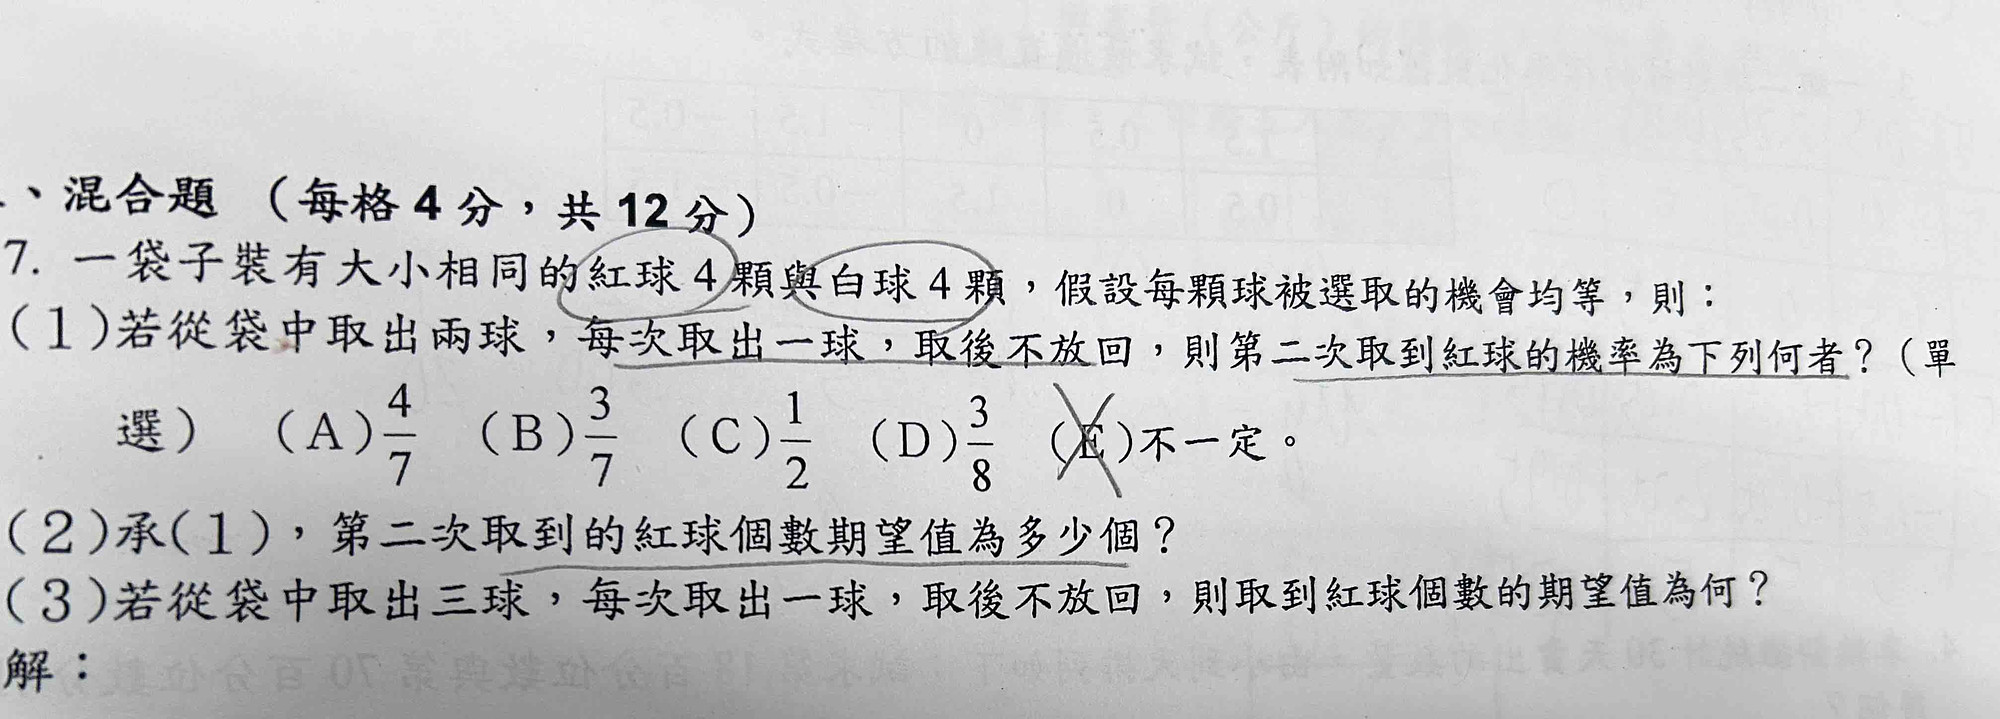 、混合題（每格4分，共12分）
7. 一袋子裝有大小相同的紅球4顆與白球4顆，假設每顆球被選取的機會均等，則：
(1)若從袋中取出兩球，每次取出一球，取後不放回，則第二次取到紅球的機率為下列何者？（單
選） (A)4/7 (B)3/7 (C)1/2 (D)3/8 (E)不一定。
(2)承(1)，第二次取到的紅球個數期望值為多少個？
(3)若從袋中取出三球，每次取出一球，取後不放回，則取到紅球個數的期望值為何？
解：